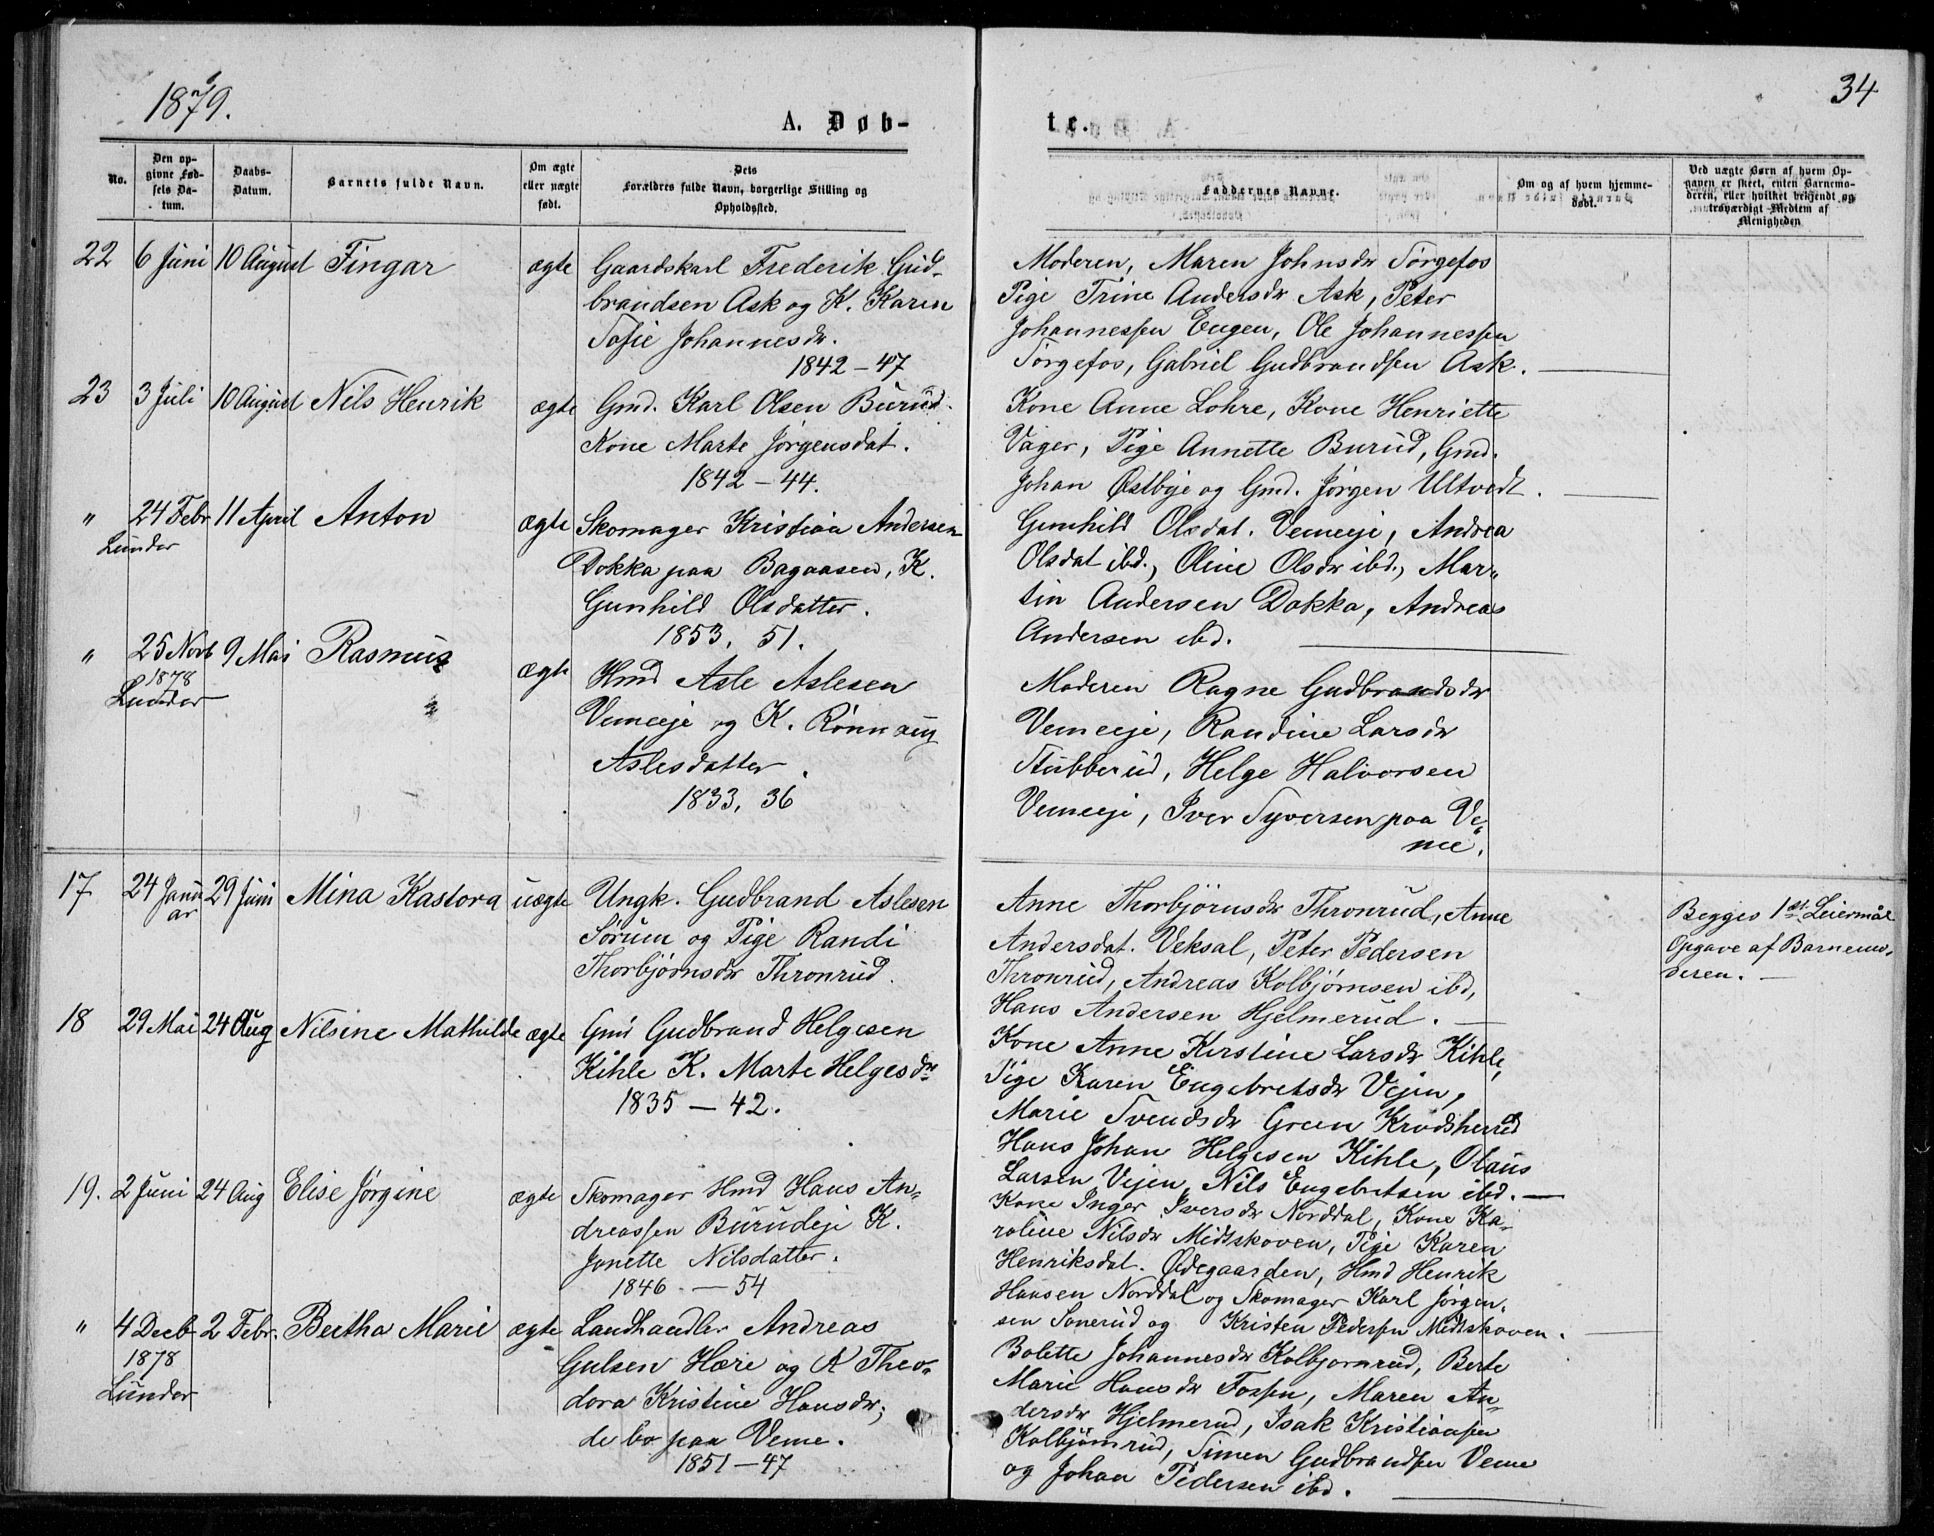 1879.
A. Døb-
No.
Den op-
givne Fød-
sels Da-
tum.
Daabs-
Datum.
Barnets fulde Navn.
Om ægte
eller uægte
født.
Dets
Forældres fulde Navn, borgerlige Stilling og
Opholdssted.
22 6 Juni 10 August Fingar ægte Gaardskarl Frederik Gud-
brandsen Ask og K. Karen
Sofie Johannesdr.
1842-47
23 3 Juli 10 August Nils Henrik ægte Gmd. Karl Olsen Burud.
Kone Marte Jørgensdat.
1842-44.
" 24 Febr 11 April Anton ægte Skomager Kristian Andersen
Lunder
Dokka paa Bagaasen, K.
Gunhild Olsdatter.
1853, 51.
" 25 Novb 9 Mai Rasmus ægte Hmd Asle Aslesen
1878
Lunder
Vemeeje og K. Rønnaug
Aslesdatter.
1833, 36
17 24 Janu 29 Juni Mina Kastora uægte Ungk. Gudbrand Aslesen
ar
Sørum og Pige Randi
Thorbjørnsdr Thronrud.
18 29 Mai 24 Aug Nilsine Mathilde ægte Gmd Gudbrand Helgesen
Kihle K. Marte Helgesdr
1835-42.
19. 2 Juni 24 Aug Elise Jørgine ægte Skomager Hmd Hans An-
dreassen Burudeje K.
Janette Nilsdatter.
1846.-54
" 4 Decb 2 Febr. Bertha Marie ægte Landhandler Andreas
1878
Lunder
Gulsen Hære og K Theo-
dora Kristine Hansdr;
de bo paa Veme.
1851-47
34
te.
Faddernes Navne.
Om og af hvem hjemme-
døbt.
Ved uægte Børn af hvem Op-
gaven er skeet, enten Barnemo-
deren, eller hvilket bekjendt og
troværdigt Medlem af
Menigheden
Moderen, Maren Johnsdr Sørgefos
Pige Trine Andersdr Ask, Peter
Johannessen Engen, Ole Johannessen
Sørgefos, Gabriel Gudbrandsen Ask.
Kone Anne Lohre, Kone Henriette
Vager, Pige Annette Burud, Gmd.
Johan Østbye og Gmd. Jørgen Ultvedt.
Gunhild Olsdat. Vemeeje, Andrea
Olsdat ibd., Oline Olsdr ibd., Mar-
tin Andersen Dokka, Andreas
Andersen ibd.
Moderen Ragne Gudbrandsdr
Vemeeje, Randine Larsdr
Stubberud, Helge Halvorsen
Vemeeje, Iver Syversen paa Ve-
me.
Anne Thorbjørnsdr Thronrud, Anne
Andersdat. Veksal, Peter Pedersen
Thronrud, Andreas Kolbjørnsen ibd,
Hans Andersen Hjelmerud.
Begges 1st Leiermål
Opgave af Barnemo-
deren.
Kone Anne Kirstine Larsdr Kihle,
Pige Karen Engebretsdr Vejen,
Marie Svendsdr Green Krødsherred
Hans Johan Helgesen Kihle, Olaus
Larsen Vejen, Nils Engebretsen ibd.
Kone Inger Iversdr Norddal, Kone Ka-
roline Nilsdr Midtskoven, Pige Karen
Henriksdat. Ødegaarden, Hmd Henrik
Hansen Norddal og Skomager Karl Jørgen-
sen Sonerud og Kristen Pedersen Midtskoven.
Bolette Johannesdr Kolbjørnrud, Berte
Marie Hansdr Fossen, Maren An-
dersdr Hjelmerud, Isak Kristiansen
Kolbjørnrud, Simen Gudbrandsen Veme
og Johan Pedersen ibd.